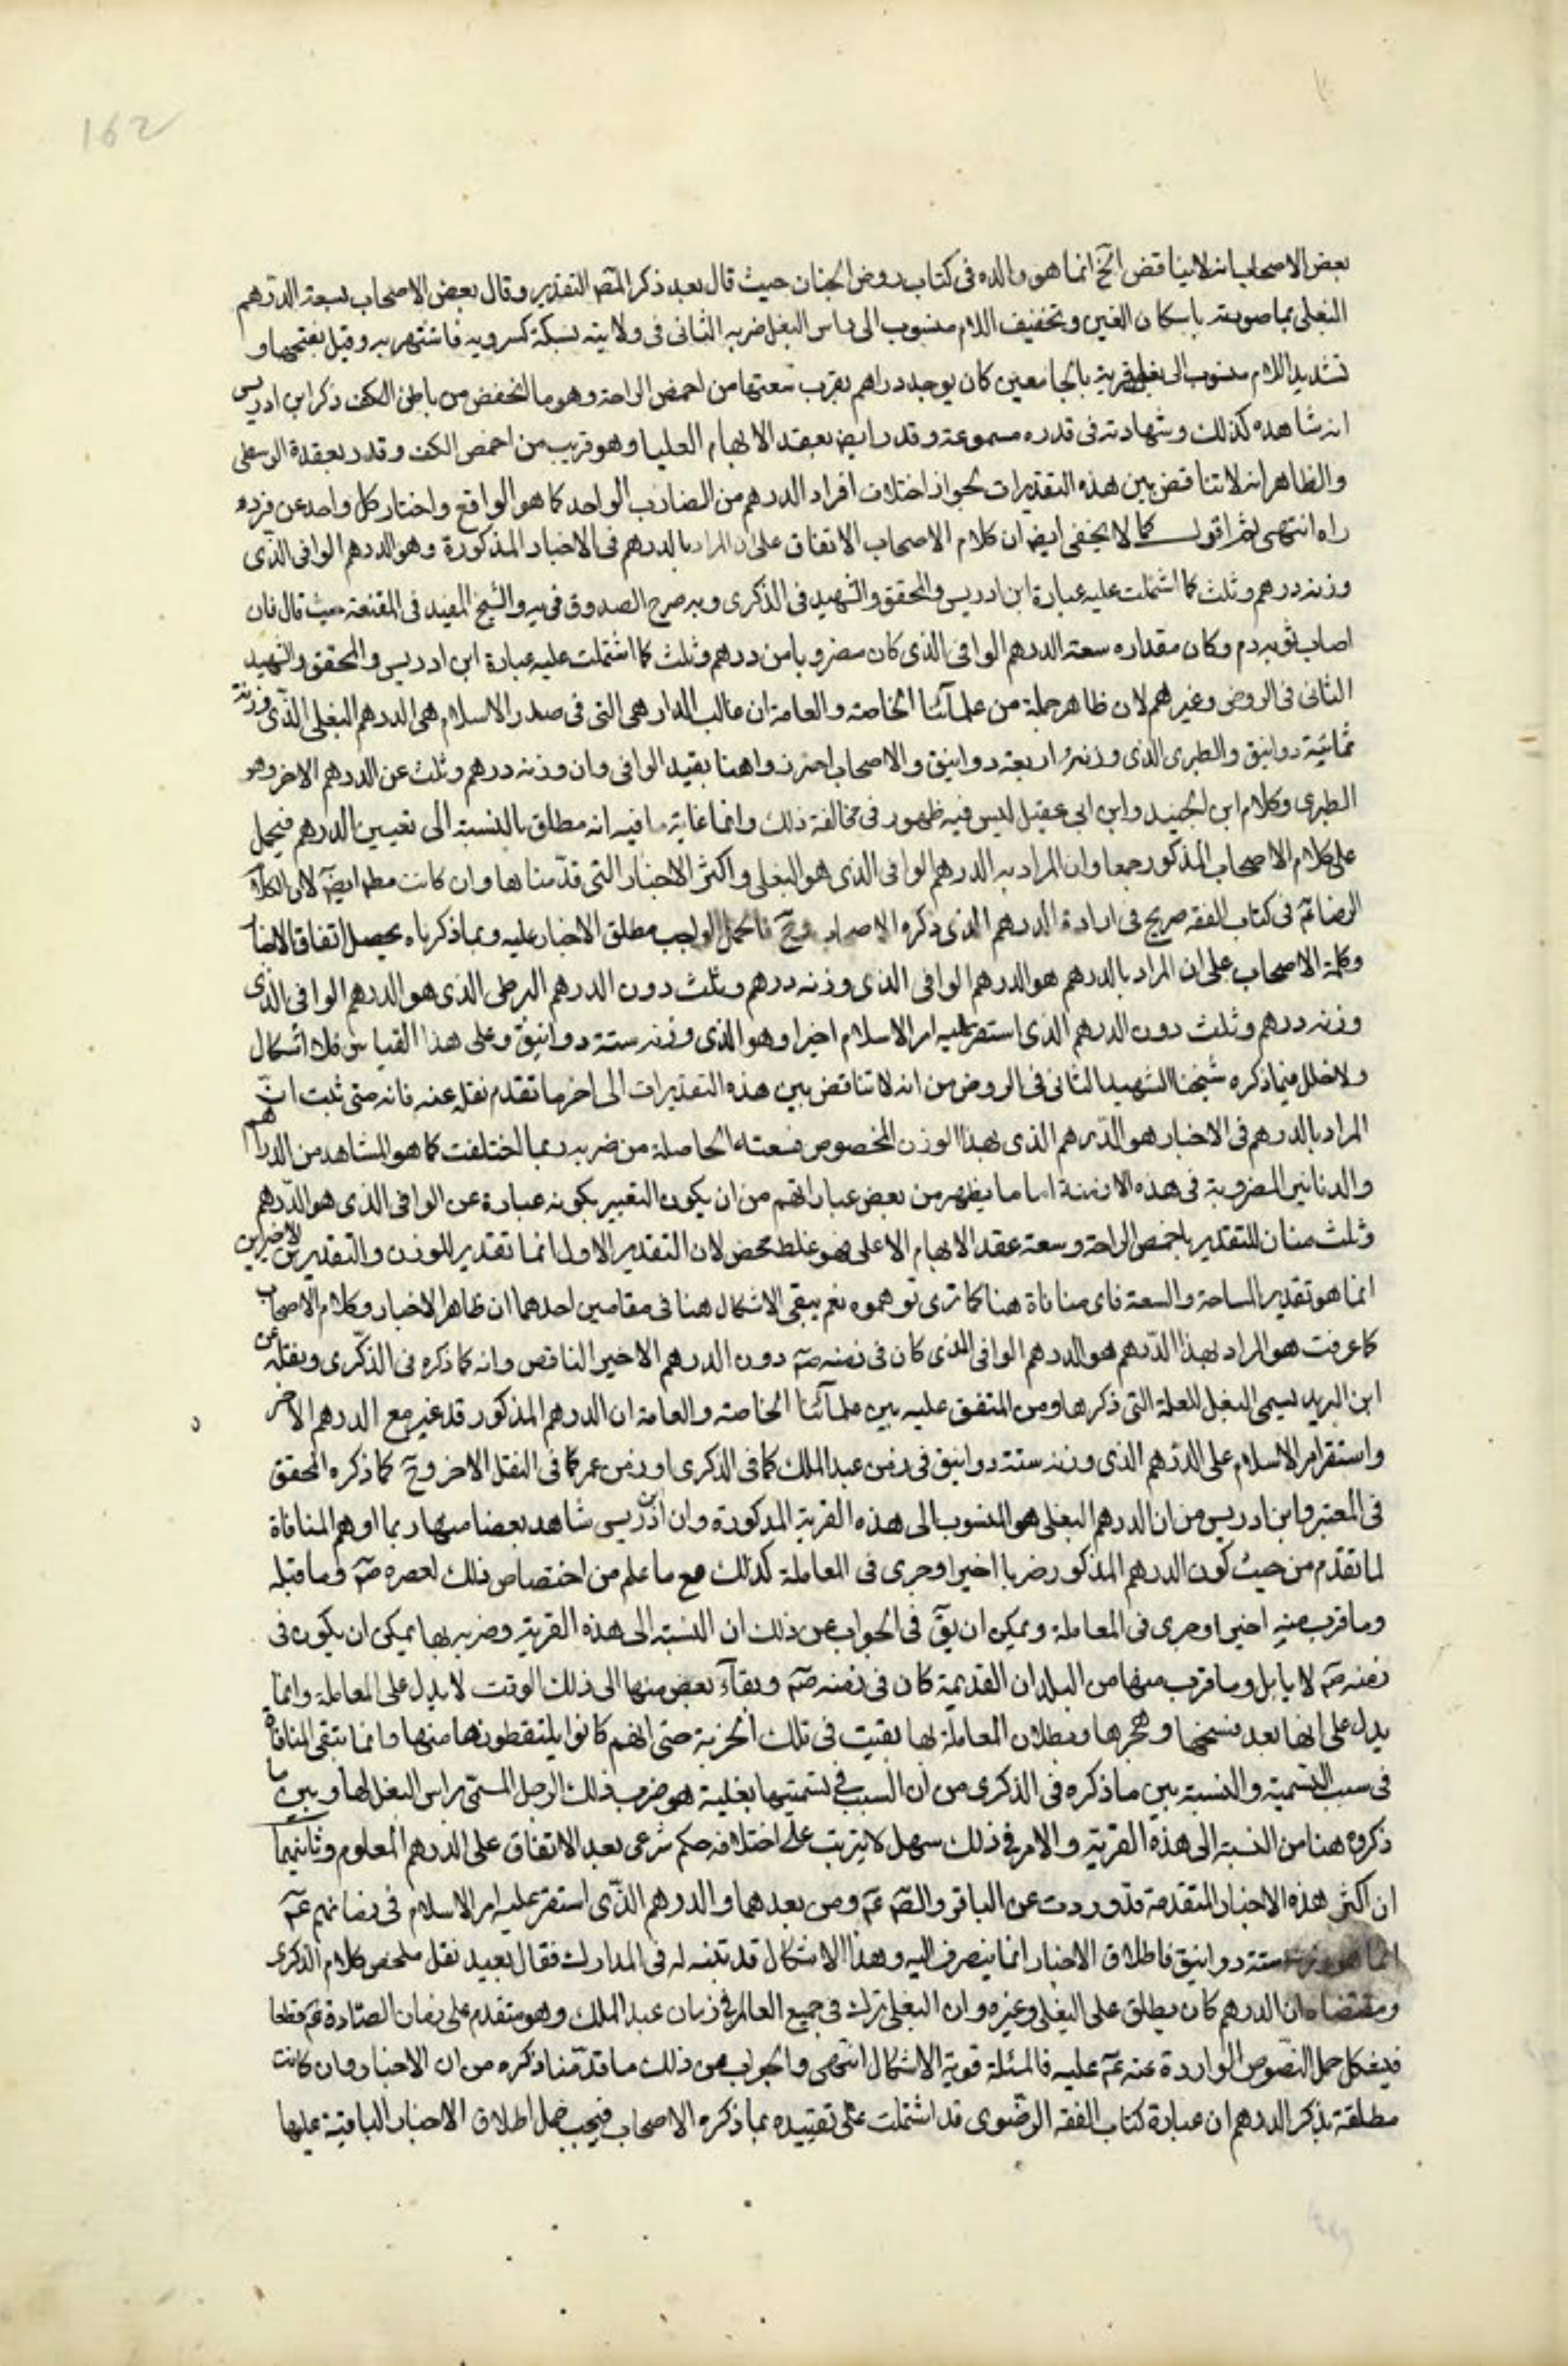 162
بعض الاصحاب انه لا يناقض الخ انما هو والده فى كتاب روض الجنان حيث قال بعد ذكر المصه التقدير وقال بعض الاصحاب لسعة الدرهم
البغلى بما صورته باسكان الغين وتخفيف اللام منسوب الى راس البغل ضربه الثانى فى ولايته بسكة كسرويه فاشتهر به وقيل بفتحها و
تشديد اللام منسوب الى بغل قرية بالجامعين كان يوجد دراهم يقرب سعتها من اخمص الراحة وهو ما انخفض من باطن الكف ذكر ابن ادريس
انه شاهده كذلك وشهادته فى قدره مسموعة وقدر ايض بعقد الابهام العليا وهو قريب من اخمص الكف وقدر بعقدة الوسطى
والظاهر انه لا تناقض بين هذه التقديرات لجواز اختلاف افراد الدرهم من الضارب الواحد كما هو الواقع واختار كل واحد عن فرد
راه انتهى ثم اقول كما لا يخفى ايض ان كلام الاصحاب الاتفاق على ان المراد بالدرهم فى الاخبار المذكورة وهو الدرهم الوافى الذى
وزنه درهم وثلث كما اشتملت عليه عبارة ابن ادريس والمحقق والشهيد فى الذكرى وبه صرح الصدوق فى يه والشيخ المفيد فى المقنعة حيث قال فان
اصاب ثوبه دم وكان مقداره سعة الدرهم الوافى الذى كان مضروبا من درهم وثلث كما اشتملت عليه عبارة ابن ادريس والمحقق والشهيد
الثانى فى الروض وغيرهم لان ظاهر جملة من علمآئنا الخاصة والعامة ان غالب المدار هى التى فى صدر الاسلام هى الدرهم البغلى الذى وزنه
ثمانية دوانيق والطبرى الذى وزنه اربعة دوانيق والاصحاب احترزوا هنا بقيد الوافى وان وزنه درهم وثلث عن الدرهم الاخر وهو
الطبرى وكلام ابن الجنيد وابن ابى عقيل ليس فيه ظهور فى مخالفة ذلك وانما غاية ما فيه انه مطلق بالنسبة الى تعيين الدرهم فيحمل
على كلام الاصحاب المذكور جمعا وان المراد به الدرهم الوافى الذى هو البغلى واكثر الاخبار التى قدمناها وان كانت مطه ايضه لان كلام
الرضا عم فى كتاب الفقه صريح فى ارادة الدرهم الذى ذكره الاصحاب وح فالحمل الواجب مطلق الاخبار عليه وبما ذكرناه يحصل اتفاق الاخبار
وكلمة الاصحاب على ان المراد بالدرهم هو الدرهم الوافى الذى وزنه درهم وثلث دون الدرهم الذى هو الدرهم الوافى الذى
وزنه درهم وثلث دون الدرهم الذى استقر عليه امر الاسلام اخيرا وهو الذى وزنه ستة دوانيق وعلى هذا القياس فلا اشكال
ولا خلل فيما ذكره شيخنا الشهيد الثانى فى الروض من انه لا تناقض بين هذه التقديرات الى اخر ما تقدم نقله عنه فانه متى ثبت ان
المراد بالدرهم فى الاخبار هو الدرهم الذى بهذا الوزن المخصوص فسعته الحاصلة من ضربه ربما اختلفت كما هو المشاهد من الدراهم
والدنانير المضروبة فى هذه الازمنة اما ما يظهر من بعض عباراتهم من ان يكون التعبير بكونه عبارة عن الوافى الذى هو الدرهم
وثلث مناف للتقدير باخمص الراحة وسعة عقد الابهام الاعلى فهو غلط محض لان التقدير الاول انما تقدير للوزن والتقديرين الاخيرين
انما هو تقدير المساحة والسعة فاى منافاة هنا كما ترى توهموه نعم يبقى الاشكال هنا فى مقامين احدهما ان ظاهر الاخبار وكلام الاصحاب
كما عرفت هو المراد بهذا الدرهم هو الدرهم الوافى الذى كان فى زمنه صم دون الدرهم الاخير الناقص وانه كما ذكره فى الذكرى ونقله عن
ابن البريد يسمى البغل للعلة التى ذكرها ومن المتفق عليه بين علمآئنا الخاصة والعامة ان الدرهم المذكور قد غير مع الدرهم الاخر
واستقر امر الاسلام على الدرهم الذى وزنه ستة دوانيق فى زمن عبد الملك كما فى الذكرى او زمن عمر كما فى النقل الاخر وح كما ذكره المحقق
فى المعتبر وابن ادريس من ان الدرهم البغلى هو المنسوب الى هذه القرية المذكورة وان ابن ادريس شاهد بعضا منها ربما اوهم المنافاة
لما تقدم من حيث كون الدرهم المذكور ضربا اخيرا وجرى فى المعاملة كذلك مع ما علم من اختصاص ذلك لعصره صم وما قبله
وما قرب منه اخيرا وجرى فى المعاملة ويمكن ان يق فى الجواب عن ذلك ان النسبة الى هذه القرية وضربه بها يمكن ان يكون فى
زمنه صم لا بابل وما قرب منها من البلدان القديمة كان فى زمنه صم وبقآء بعض منها الى ذلك الوقت لا يدل على المعاملة وانما
يدل على انها بعد نسخها وهجرها وبطلان المعاملة بها بقيت فى تلك الخربة حتى انهم كانوا يلتقطونها منها وانما تبقى المنافاة
فى سبب التسمية والنسبة بين ما ذكره فى الذكرى من ان السبب فى تسميتها بغلية هو ضرب ذلك الرجل المسمى براس البغل لها وبين ما
ذكروه هنا من النسبة الى هذه القرية والامر فى ذلك سهل لا يترتب على اختلافه حكم شرعى بعد الاتفاق على الدرهم المعلوم وثانيهما
ان اكثر هذه الاخبار المتقدمة قد وردت عن الباقر والصه عم ومن بعدهما والدرهم الذى استقر عليه امر الاسلام فى زمانهم عم
انما هو وزنه ستة دوانيق فاطلاق الاخبار انما ينصرف اليه وهذا الاشكال قد تنبه له فى المدارك فقال بعيد نقل ملخص كلام الذكرى
ومقتضاه ان الدرهم كان يطلق على البغلى وغيره وان البغلى ترك فى جميع العالم فى زمان عبد الملك وهو متقدم على زمان الصادق عم قطعا
فيشكل حمل النصوص الواردة عنه عم عليه فالمسئلة قوية الاشكال انتهى والجواب عن ذلك ما قدمنا ذكره من ان الاخبار وان كانت
مطلقة بذكر الدرهم ان عبارة كتاب الفقه الرضوى قد اشتملت على تقييده بما ذكره الاصحاب فيجب حمل اطلاق الاخبار الباقية عليها